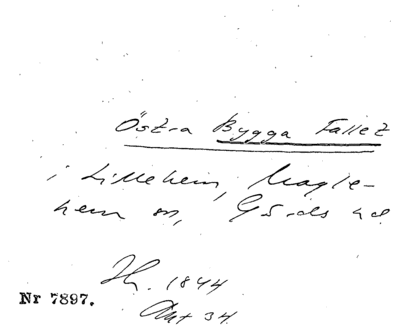 Östra Bygga Fallet
i Lillehem, Magle-
hem sn, Gärds hd
Jh. 1844
Akt 34
Nr 7897.